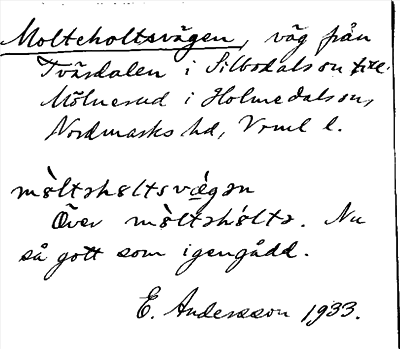 Molteholtsvägen, väg från
Tvärdalen i Silbodals sn till
Mölnerud i Holmedals sn,
Nordmarks hd, Vrml l.
mòltəhɷltsvǽgən
Över mòltəhɷ́ltə. Nu
så gott som igengådd.
E. Andersson 1933.